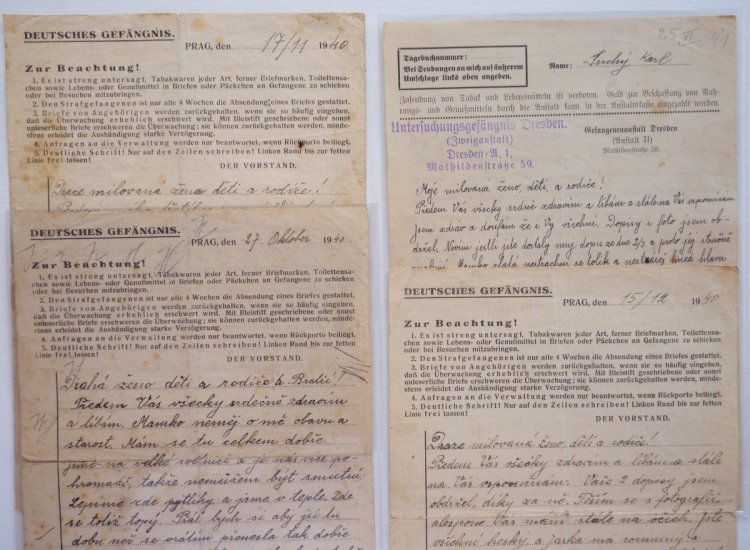 DEUTSCHES GEFÄNGNIS.
PRAG, den 17/11 1940
Zur Beachtung!
1. Es ist streng untersagt, Tabakwaren jeder Art, ferner Briefmarken, Toilettensa-
chen sowie Lebens- oder Genußmittel in Briefen oder Päckchen an Gefangene zu schicken
oder bei Besuchen mitzubringen.
2. Den Strafgefangenen ist nur alle 4 Wochen die Absendung eines Briefes gestattet.
3. Briefe von Angehörigen werden zurückgehalten, wenn sie so häufig eingehen,
daß die Überwachung erheblich erschwert wird. Mit Bleistift geschriebene oder sonst
unleserliche Briefe erschweren die Überwachung; sie können zurückgehalten werden, minde-
stens erleidet die Aushändigung starke Verzögerung.
4. Anfragen an die Verwaltung werden nur beantwortet, wenn Rückporto beiliegt.
5. Deutliche Schrift! Nur auf den Zeilen schreiben! Linken Rand bis zur fetten
Linie frei lassen!
DER VORSTAND.
Draze milovaná ženo děti a rodiče!
DEUTSCHES GEFÄNGNIS.
PRAG, den 27. Oktober 1940
Zur Beachtung!
1. Es ist streng untersagt, Tabakwaren jeder Art, ferner Briefmarken, Toilettensa-
chen sowie Lebens- oder Genußmittel in Briefen oder Päckchen an Gefangene zu schicken
oder bei Besuchen mitzubringen.
2. Den Strafgefangenen ist nur alle 4 Wochen die Absendung eines Briefes gestattet.
3. Briefe von Angehörigen werden zurückgehalten, wenn sie so häufig eingehen,
daß die Überwachung erheblich erschwert wird. Mit Bleistift geschriebene oder sonst
unleserliche Briefe erschweren die Überwachung; sie können zurückgehalten werden, minde-
stens erleidet die Aushändigung starke Verzögerung.
4. Anfragen an die Verwaltung werden nur beantwortet, wenn Rückporto beiliegt.
5. Deutliche Schrift! Nur auf den Zeilen schreiben! Linken Rand bis zur fetten
Linie frei lassen!
DER VORSTAND.
Drahá ženo děti a rodiče Bratři!
Předem Vás všecky srdečně zdravím
a líbám. Mamko neměj o mě obavu a
starost. Mám se tu celkem dobře
jsme na velké světnici a je nás více po-
hromadě, takže nemusím být smutný.
Lepíme zde pytlíky a jsme v teple. Zde
se totiž topí. Přál bych si aby jsi tu
dobu než se vrátím přenesla tak dobře
Tagebuchnummer:
Bei Sendungen an mich auf äußerem
Umschlage links oben angeben.
Name: Karl
Zusendung von Tabak und Lebensmitteln ist verboten. Geld zur Beschaffung von Nah-
rungs- und Genußmitteln durch die Anstalt kann in der Anstaltskasse eingezahlt werden.
Untersuchungsgefängnis Dresden.
(Zweiganstalt)
Dresden-A. 1,
Mathildenstraße 59.
Gefangenenanstalt Dresden
(Anstalt II)
Mathildenstraße 59.
Mojé milovaná ženo, děti, a rodiče!
Předem Vás všecky srdně zdravím a líbám a stále na Vás vzpomínám
jsem zdráv a doufám že i Vy všichni. Dopisy i foto jsem ob-
držel. Nevím jestli jste dostaly můj dopis ze dne 2/3 a proto jej stručně
DEUTSCHES GEFÄNGNIS.
PRAG, den 15/12 1940
Zur Beachtung!
1. Es ist streng untersagt, Tabakwaren jeder Art, ferner Briefmarken, Toilettensa-
chen sowie Lebens- oder Genußmittel in Briefen oder Päckchen an Gefangene zu schicken
oder bei Besuchen mitzubringen.
2. Den Strafgefangenen ist nur alle 4 Wochen die Absendung eines Briefes gestattet.
3. Briefe von Angehörigen werden zurückgehalten, wenn sie so häufig eingehen,
daß die Überwachung erheblich erschwert wird. Mit Bleistift geschriebene oder sonst
unleserliche Briefe erschweren die Überwachung; sie können zurückgehalten werden, minde-
stens erleidet die Aushändigung starke Verzögerung.
4. Anfragen an die Verwaltung werden nur beantwortet, wenn Rückporto beiliegt.
5. Deutliche Schrift! Nur auf den Zeilen schreiben! Linken Rand bis zur fetten
Linie frei lassen!
DER VORSTAND.
Draze milovaná ženo děti a rodiče!
Předem Vás všecky zdravím a líbám a stále
na Vás vzpomínám. Vaše 2 dopisy jsem
obdržel, díky za ně. Těším se s fotografií,
alespoň Vás mám stále na očích. Jste
všichni hezký a Jarka má